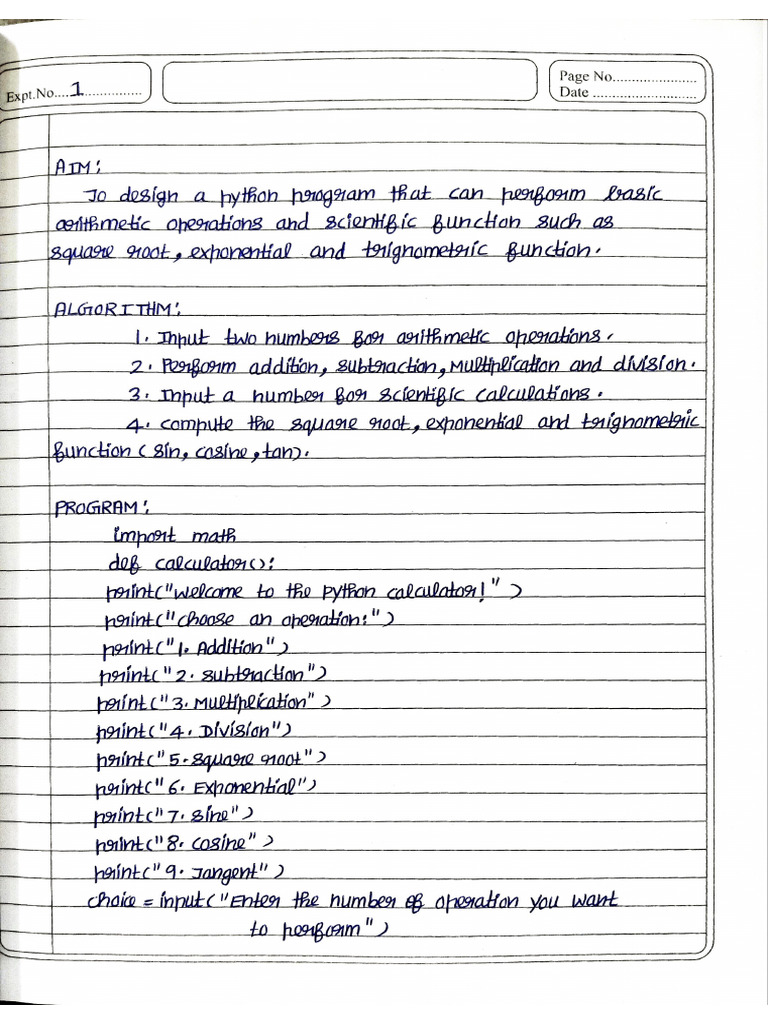 Expt.No....1................
Page No......................
Date ...........................
AIM:
To design a python program that can perform basic
arithmetic operations and scientific function such as
square root, exponential and trignometric function.
ALGORITHM:
1. Input two numbers for arithmetic operations.
2. Perform addition, subtraction, Multiplication and division.
3. Input a number for scientific calculations.
4. compute the square root, exponential and trignometric
function (sin, cosine, tan).
PROGRAM:
import math
def calculator():
print("Welcome to the python calculator!")
print("choose an operation:")
print("1. Addition")
print("2. Subtraction")
print("3. Multiplication")
print("4. Division")
print("5. square root")
print("6. Exponential")
print("7. Sine")
print("8. Cosine")
print("9. Tangent")
choice = input("Enter the number of operation you want
to perform")